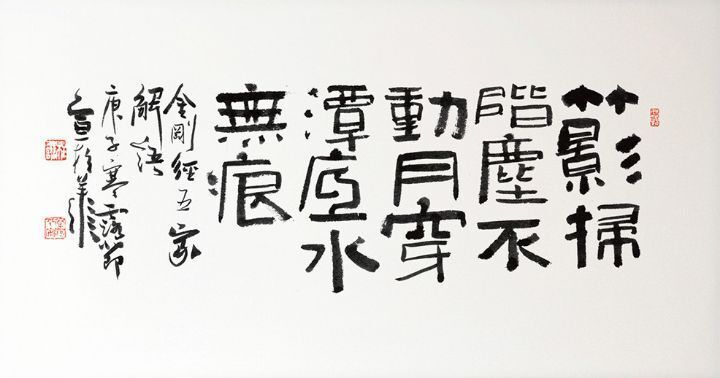 竹影掃
階塵不
動月穿
潭底水
無痕
金剛經五家
解語
庚子寒露節